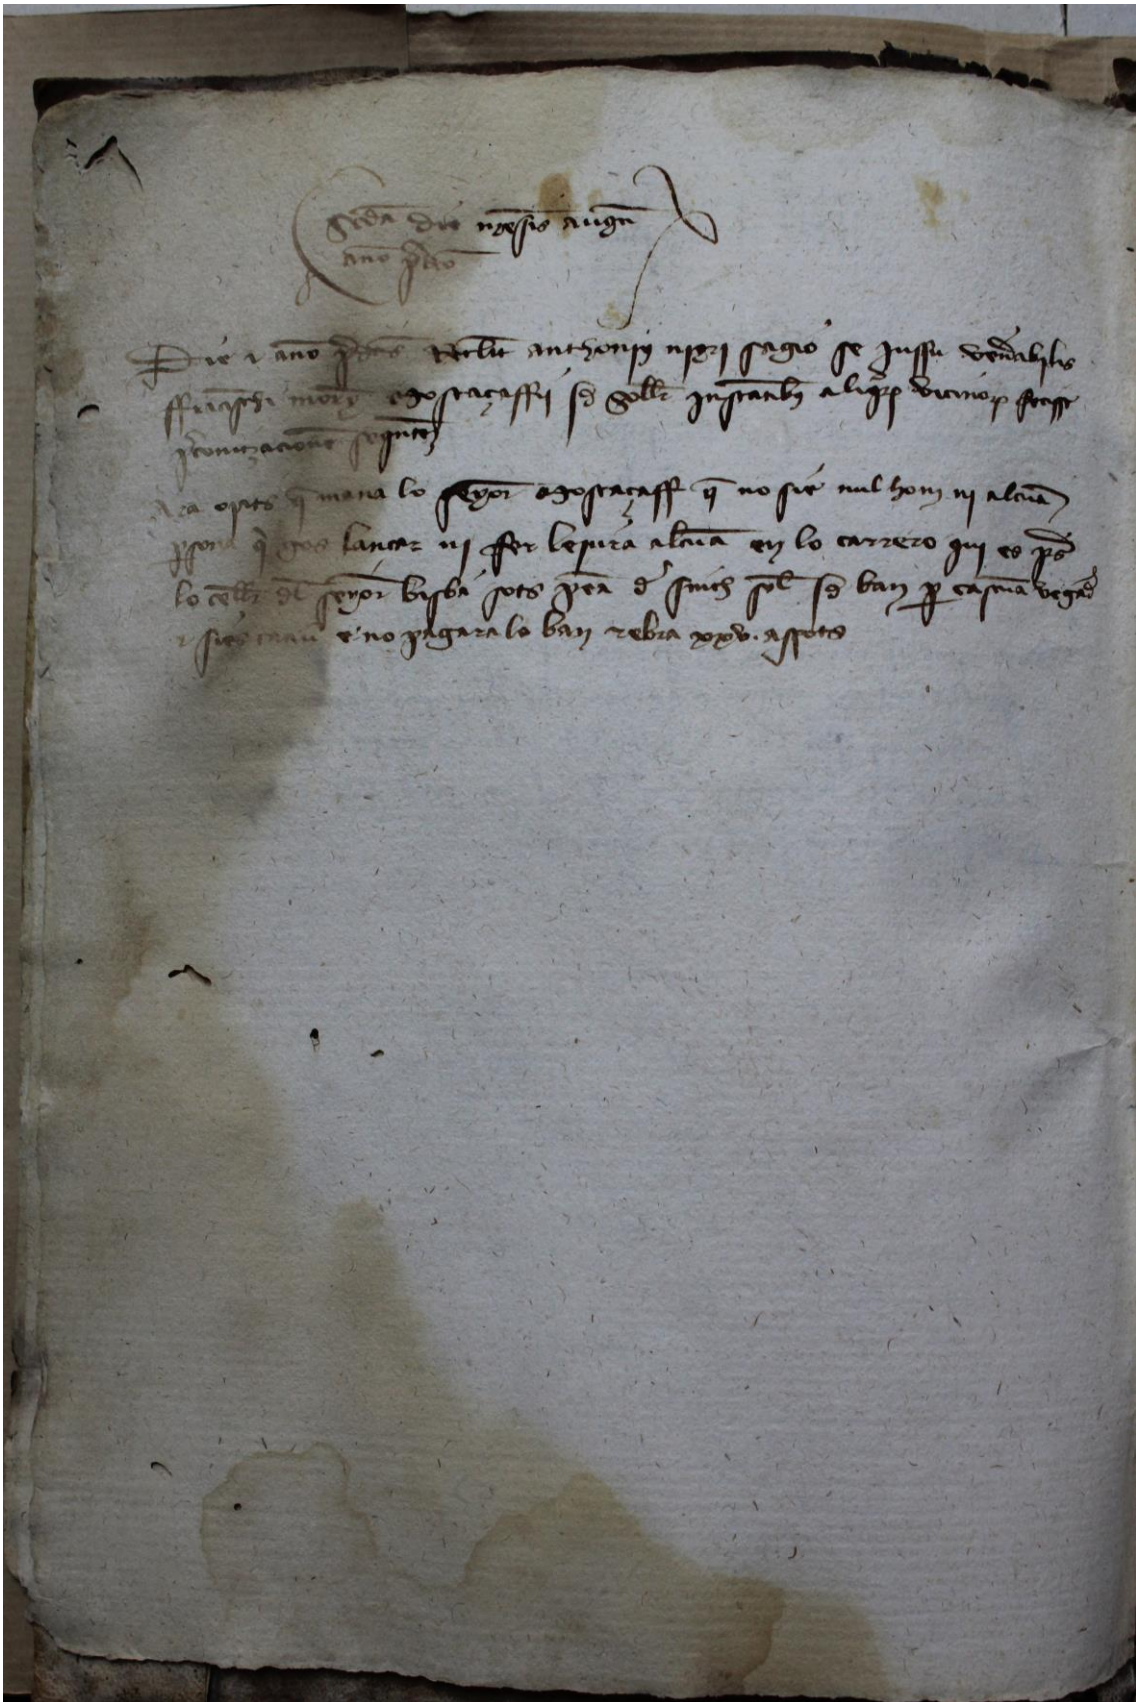 Scda die mensis augti
ano pdco
Die & ano pdcis Retulit anthonius nigri sagio se Jussu venerabilis
ffrancischi mora mostaçaffii sd Sollr Instantibz aliqrp vicinorp fecisse
pconitzacione sequente
Ara oyats q mana lo senyor mostaçaff q no sie nul hom ni alcuna
psona q gos lancar ni ffer lesura alcuna en lo carrero qui es ps
lo cellr dl senyor bisba sots pena d sinch sol sd ban p cascuna vegada
& sies catiu e no pagara lo ban rebra xxv. assots